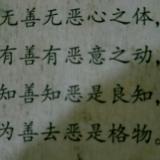 无善无恶心之体,
有善有恶意之动,
知善知恶是良知,
为善去恶是格物。